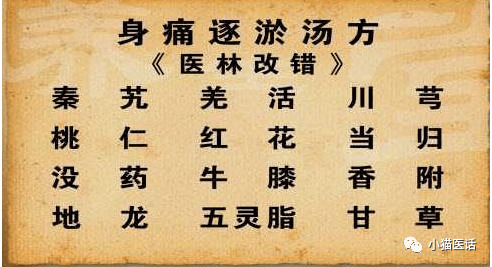 身痛逐淤汤方
《医林改错》
秦艽 羌活 川芎
桃仁 红花 当归
没药 牛膝 香附
地龙 五灵脂 甘草
小猫医话